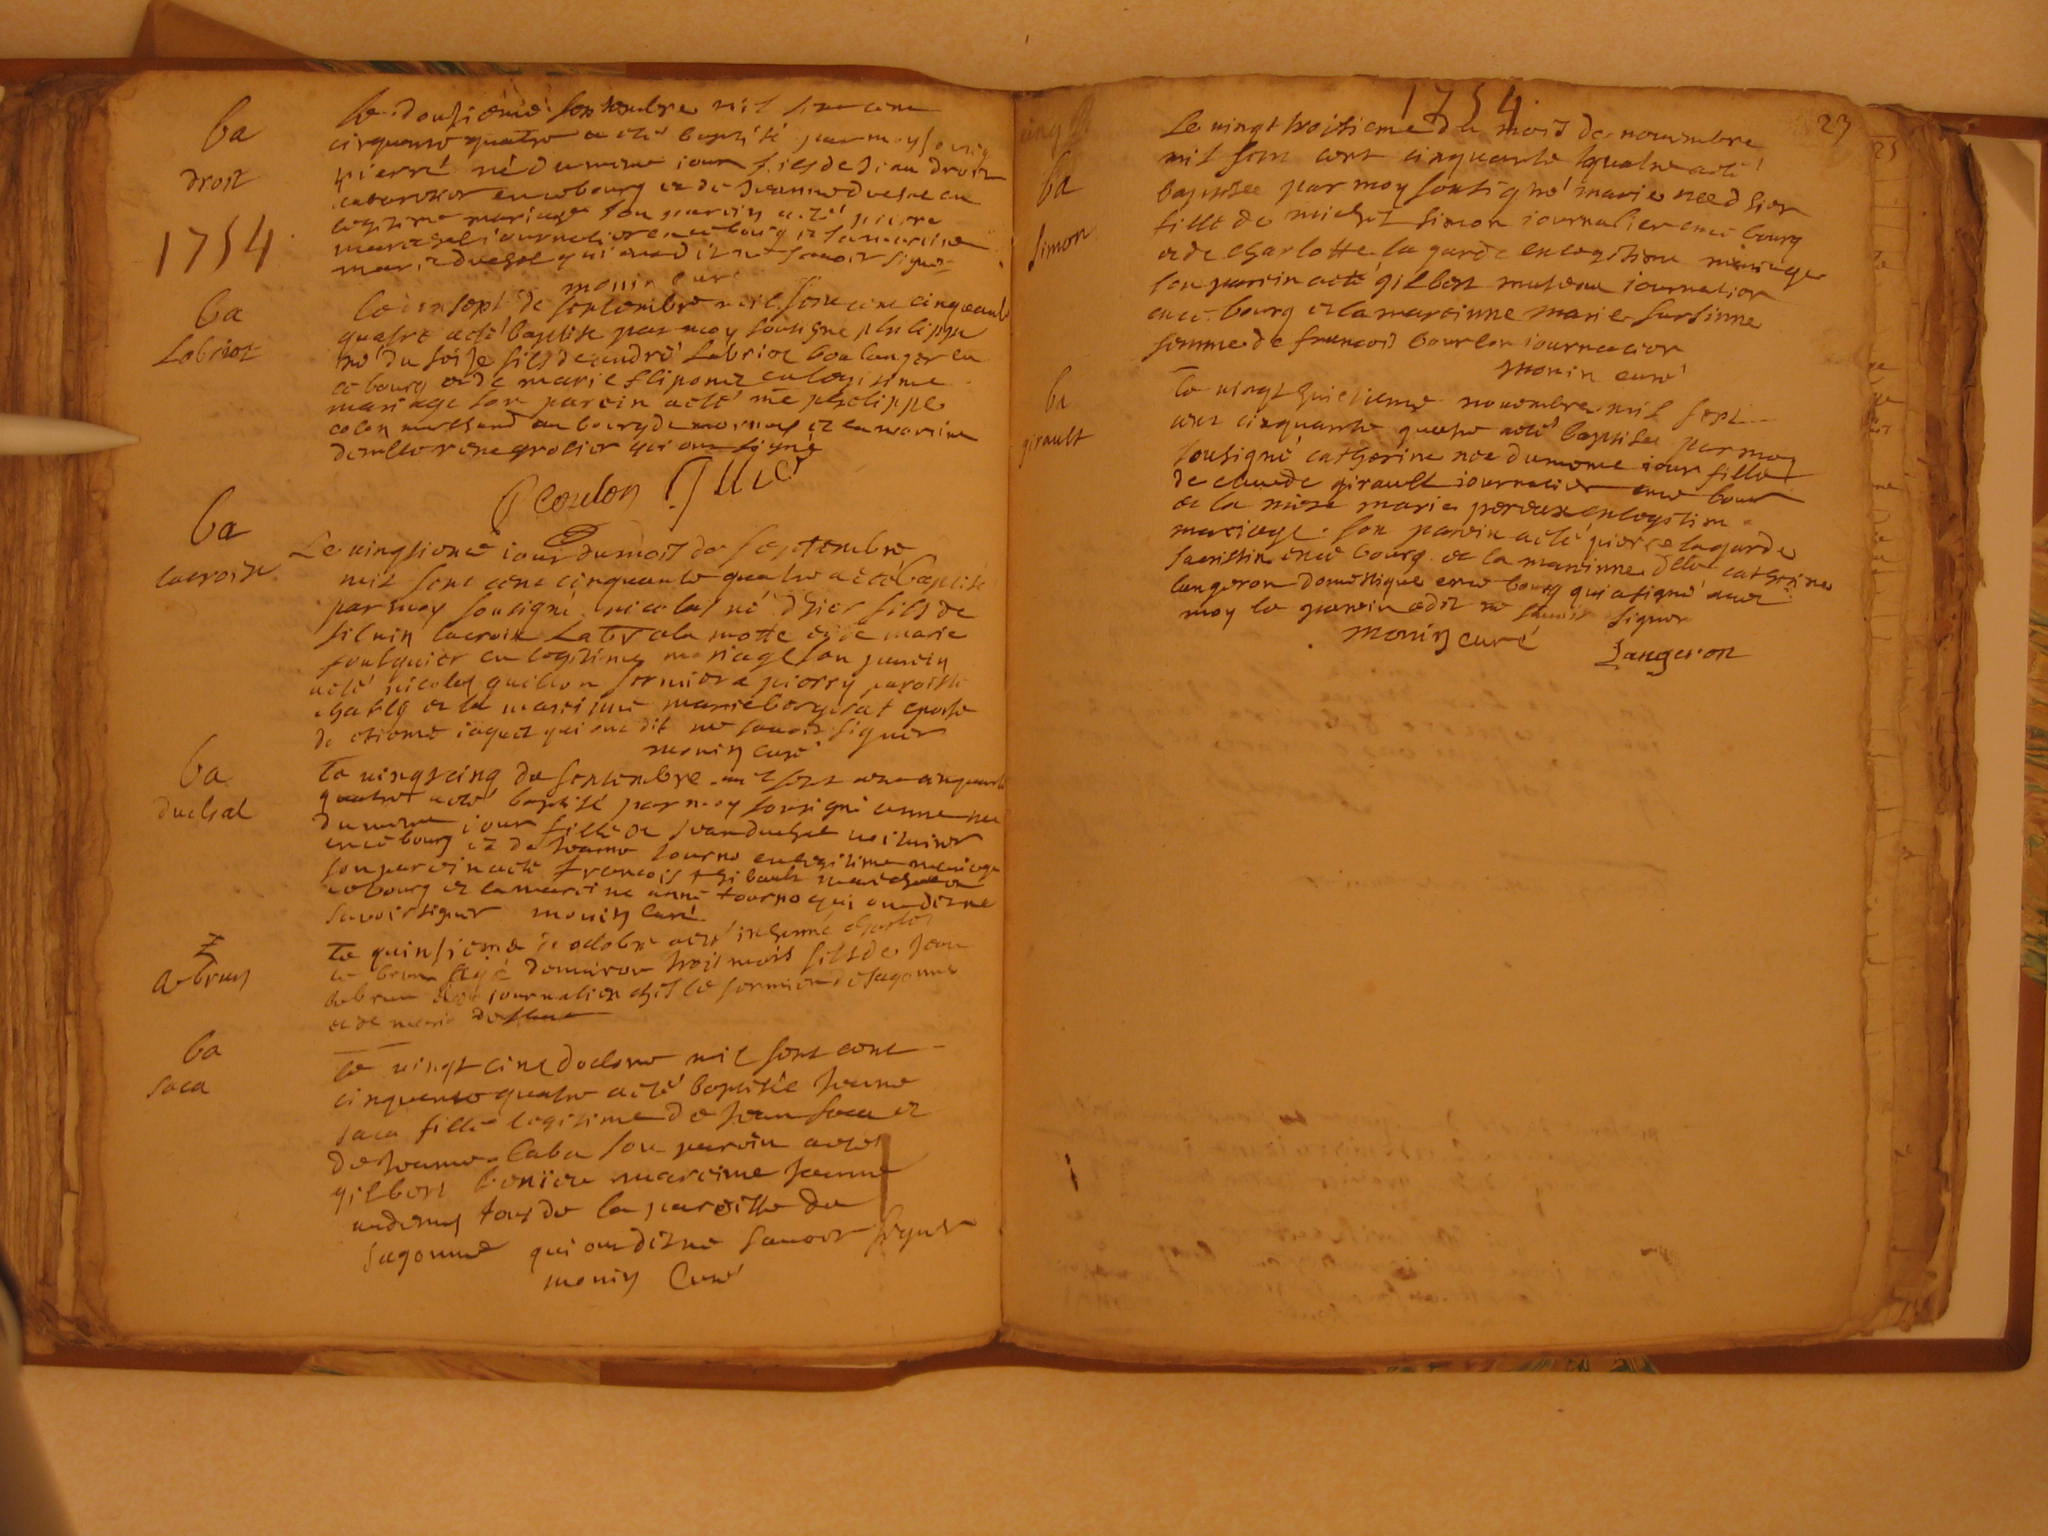 ba
droit
1754
le dousiéme septembre mil sept cent
cinquante quatre a eté baptisé par moy sousig
pierre né du meme iour fils de Jean droit
en ce bourg et de Jeanne duchal en
legitime mariage son parein a eté pierre
marechal iournalier en ce bourg et la mareine
marie duchal qui ont dit ne savoir signer
monin curé
ba
Labriot
Le dix sept de septembre mil sept cent cinquante
quatre a eté baptisé par moy sousigné philippe
né du fils de andré Labriot boulanger en
ce bourg et de marie fliponet en legitime
mariage son parein a eté me philippe
colon marchand au bourg de mornay et la mareine
qui ont signé
P Coulon
ba
lacroix
Le vingtieme iour du mois de septembre
mil sept cent cinquante quatre a eté baptisé
par moy sousigné nicolas né d'hier fils de
siluin lacroix a la motte et de marie
foulquier en legitime mariage son parein
a eté nicolas guillon fermier a pierry paroisse
chably et la mareinne marie bergerat epouse
de etienne iaquet qui ont dit ne savoir signer
monin curé
ba
duchal
Le vingt cinq de septembre mil sept cent cinquante
quatre a eté baptisé par moy sousigné anne née
du meme iour fille de Jean duchal voiturier
en ce bourg et de Jeanne tourno en legitime mariage
son parein a eté francois thibault
ce bourg et la mareine anne tourno qui ont dit ne
savoir signer monin curé
debrun
Le quinsieme de octobre a eté inhumé charles
de brun agé d'environ trois mois fils de Jean
debrun iournalier chés le fermier de sagonne
et de marie
ba
saca
Le vingt cinq d'octobre mil sept cent
cinquante quatre a eté baptisée Jeanne
saca fille legitime de Jean saca et
de Jeanne Caba son parein a eté
gilbert mareine Jeanne
tous de la paroisse de
sagonne qui ont dit ne savoir signer
monin Curé
1754
23
ba
simon
Le vingt troisieme du mois de nouembre
mil sept cent cinquante quatre a eté
baptisée par moy sousigné marie née d'hier
fille de michel simon iournalier en ce bourg
et de charlotte la garde en legitime mariage
son parein a eté gilbert iournalier
en ce bourg et la mareinne marie
femme de francois bourlon iournalier
monin curé
ba
girault
Le vingt huictieme nouembre mil sept
cent cinquante quatre a eté baptisée par moy
sousigné catherine née du meme iour fille
de claude girault iournalier en ce bour
et la mere marie pereux en legitim
mariage. son parein a eté pierre lagarde
sacristin en ce bourg et la mareinne dlle catherine
langeron domestique en ce bourg qui a signé avec
moy le parein a dit ne savoir signer
monin curé Langeron